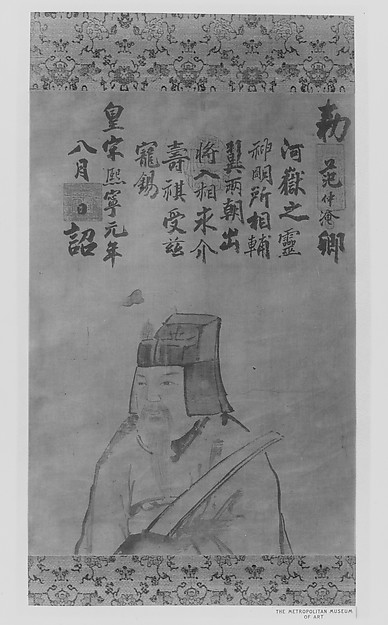 勅范仲淹卿
河嶽之靈
神明所相輔
翼兩朝出
將入相求介
壽祺受茲
寵錫
皇宋熙寧元年
八月日詔
THE METROPOLITAN MUSEUM
OF ART